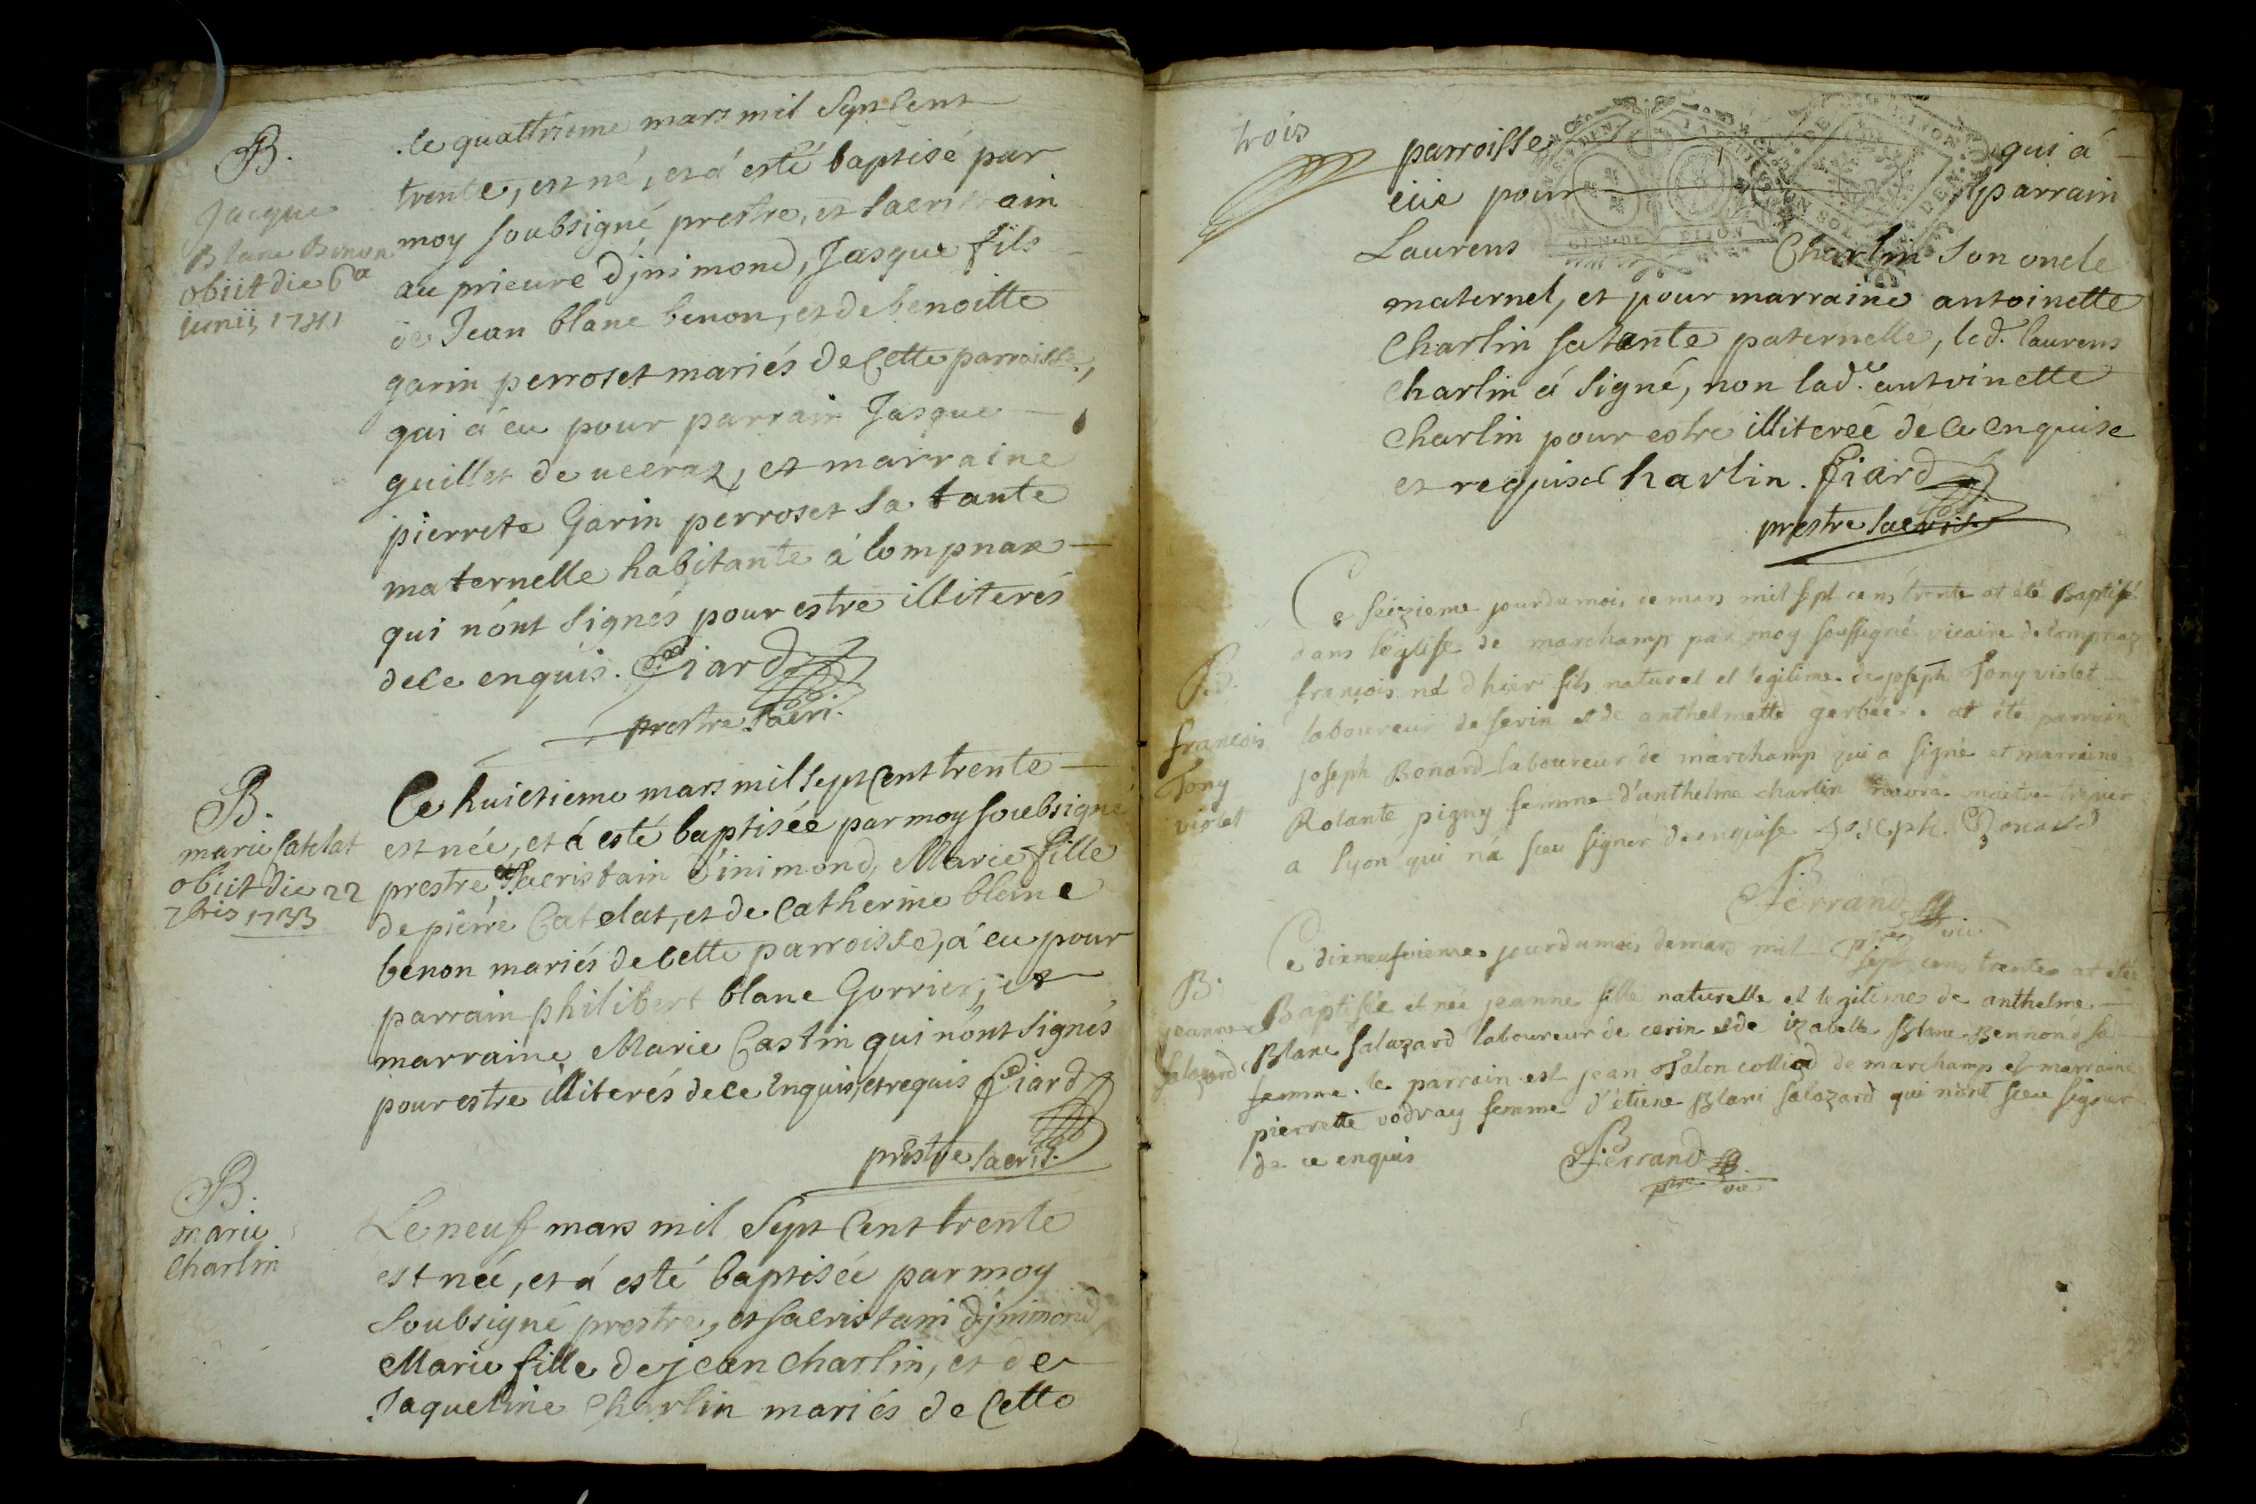 B.
Jacque
Blanc Benon
obiit die 6a
junii 1741
le quattrieme mars mil sept cent
trente, est né, et á esté baptisé par
moy soubsigné prestre, et sacristain
au prieuré d'jnimond, Jasque fils
de Jean blanc benon, et de benoitte
garin perroset mariés de Cette parroisse,
qui á eu pour parrain Jasque
guillet de, et marraine
pierrete Garin perroset sa tante
maternelle habitante á lompnax
qui nónt signés pour estre illiterés
de ce enquis. Fiard
prestre sacri.
B.
marie Catelat
obiit die 22
7bris 1733
Ce huictieme mars mil sept Cent trente
est née, et á esté baptisée par moy soubsigné
prestre, et sacristain d'inimond, Marie fille
de pierre Catelat, et de Catherine blanc
benon mariés de Cette parroisse, á eu pour
parrain philibert blanc Gorrier, et
marraine Marie Castin qui nónt signés
pour estre illiterés de ce Enquis, et requis Fiard
prestre sacrist.
B.
marie
Charlin
Le neuf mars mil sept Cent trente
est née, et á esté baptisée par moy
soubsigné prestre, et sacristain d'jnimond
Marie fille de jean Charlin, et de
Jaqueline Charlin mariés de Cette
trois
parroisse qui á
eüe pour parrain
Laurens Charlin son oncle
maternel, et pour marraine antoinette
Charlin sa tante paternelle, led. laurens
Charlin á signé, non lade. antoinette
Charlin pour estre illiterée de Ce Enquise
et requise Charlin. Fiard
prestre sacrist.
B.
françois
Tony
violet
Ce seizieme jour du mois de mars mil sept cens trente at été Baptisé
dans l'église de marchamp par moy soussigné vicaire de lompnaz
françois né d'hier fils naturel et legitime de joseph Tony violet
laboureur de serin et de anthelmette gerbier. at été parrain
joseph Bonard laboureur de marchamp qui a signé et marraine
Rolante pigny femme d'anthelme charlin maitre
a lyon qui n'a sceu signer de enquise Joseph Bonard
Ferrand
ptre vic.
B.
jeanne
salazard
Ce dixneufvieme jour du mois de mars mil sept cens trente at été
Baptisée et née jeanne fille naturelle et legitime de anthelme
Blanc salazard laboureur de cerin et de izabelle Blanc Bennond sa
femme. le parrain est jean Talon colliad de marchamp et marraine
pierrette vodray femme d'étiene Blanc salazard qui n'ont sceu signer
de ce enquis Ferrand
ptre vic